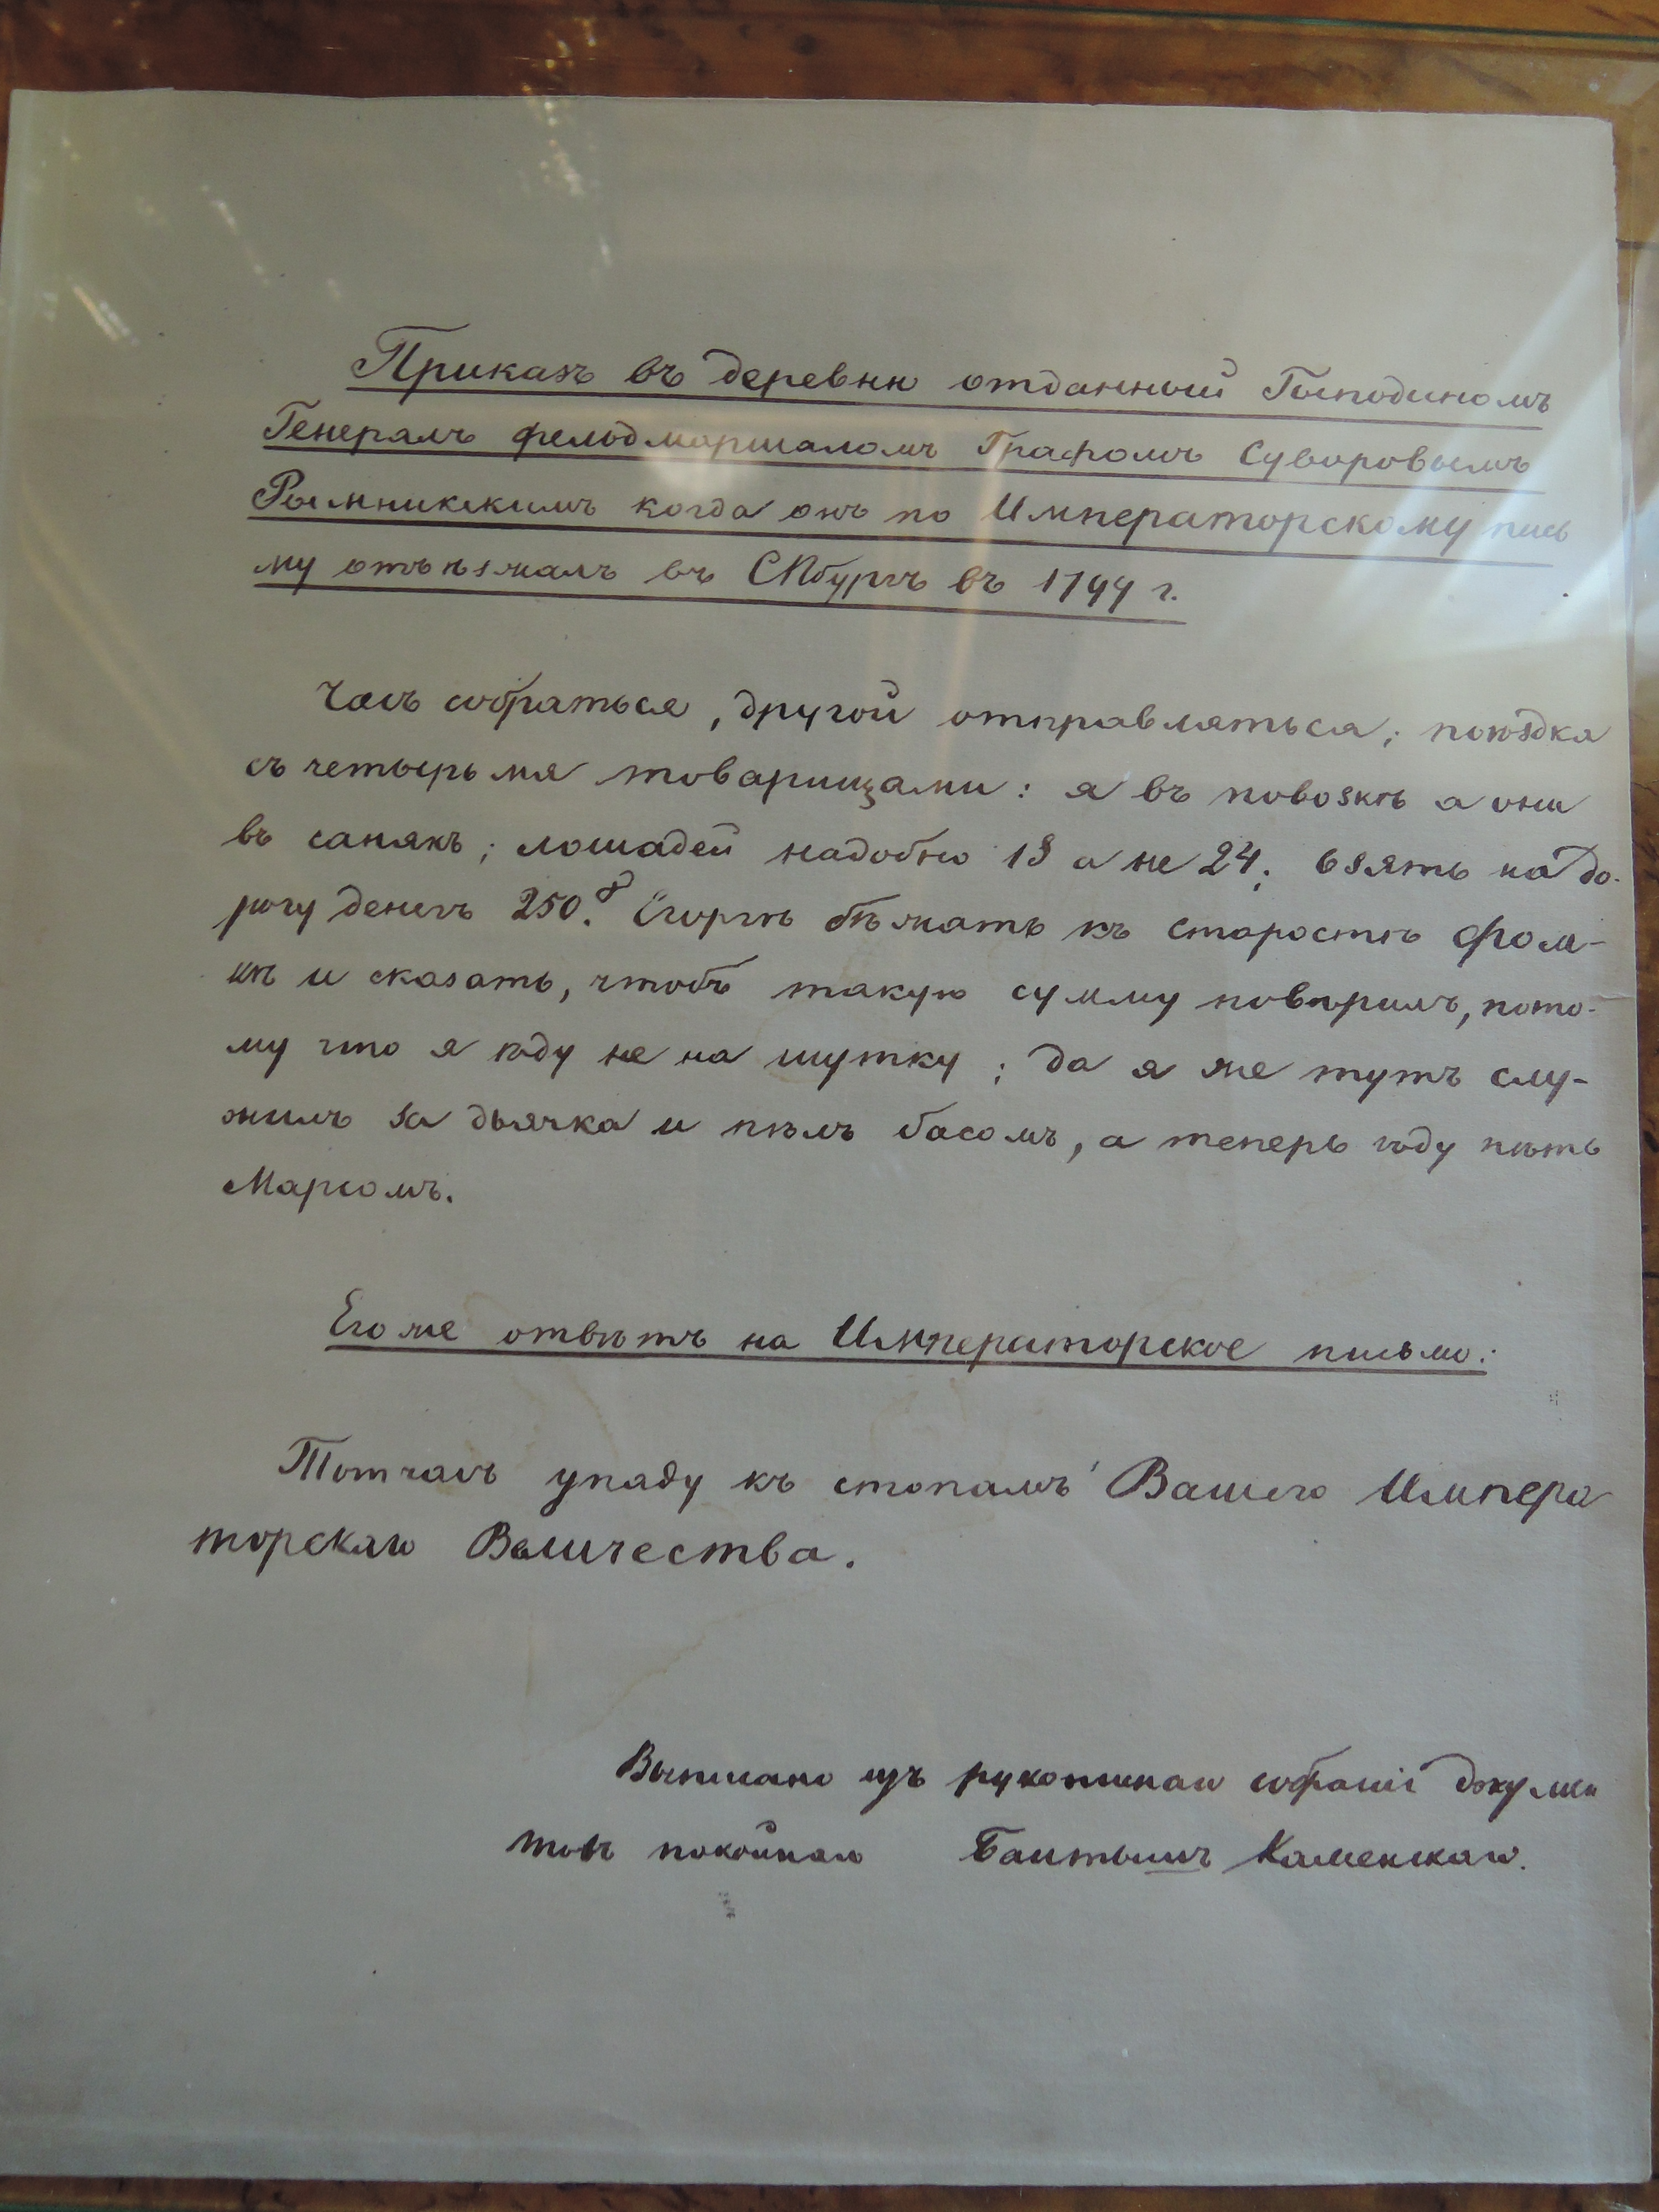 Приказъ въ деревни отданный Господиномъ
Генералъ фельдмаршаломъ Графомъ Суворовымъ
Рымникскимъ когда онъ по Императорскому пись
му отъѣзжалъ въ СПбургъ въ 1799 г.
Часъ собраться, другой отправляться; поѣздка
съ четырьмя товарищами: я въ повозкѣ а они
въ саняхъ; лошадей надобно 18 а не 24; взять на до-
рогу денегъ 250. Егоркѣ бѣжать къ старостѣ Фом-
кѣ и сказать, чтобъ такую сумму повѣрилъ, пото-
му что я ѣду не на шутку; да я же тутъ слу-
жилъ за дьячка и пѣлъ басомъ, а теперь ѣду пѣть
Марсомъ.
Его же отвѣтъ на Императорское письмо:
Тотчасъ упаду къ стопамъ Вашего Импера
торскаго Величества.
Выписано изъ рукописнаго собранія докумен
товъ покойнаго Бантышъ Каменскаго.